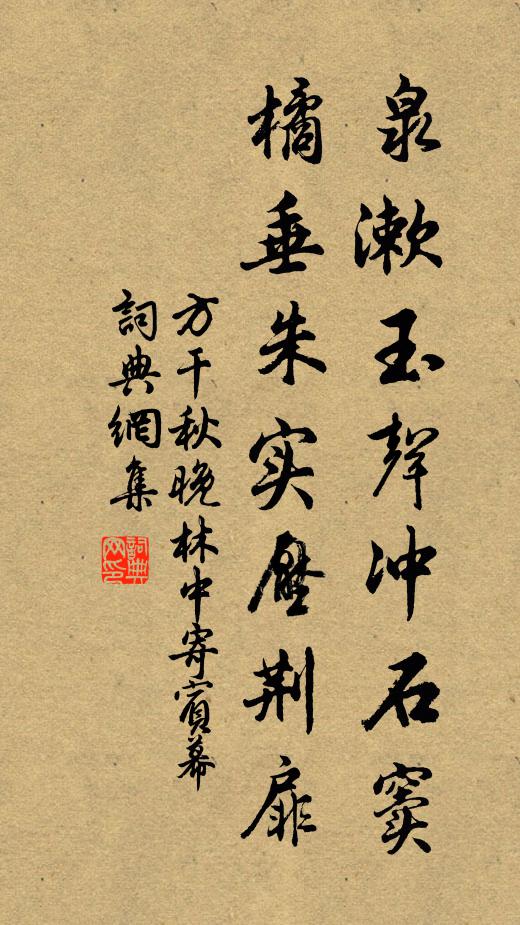 泉漱玉聲冲石窦
橘垂朱实壓荆扉
方干秋晚林中寄賓幕
詞典網集
詞典网印